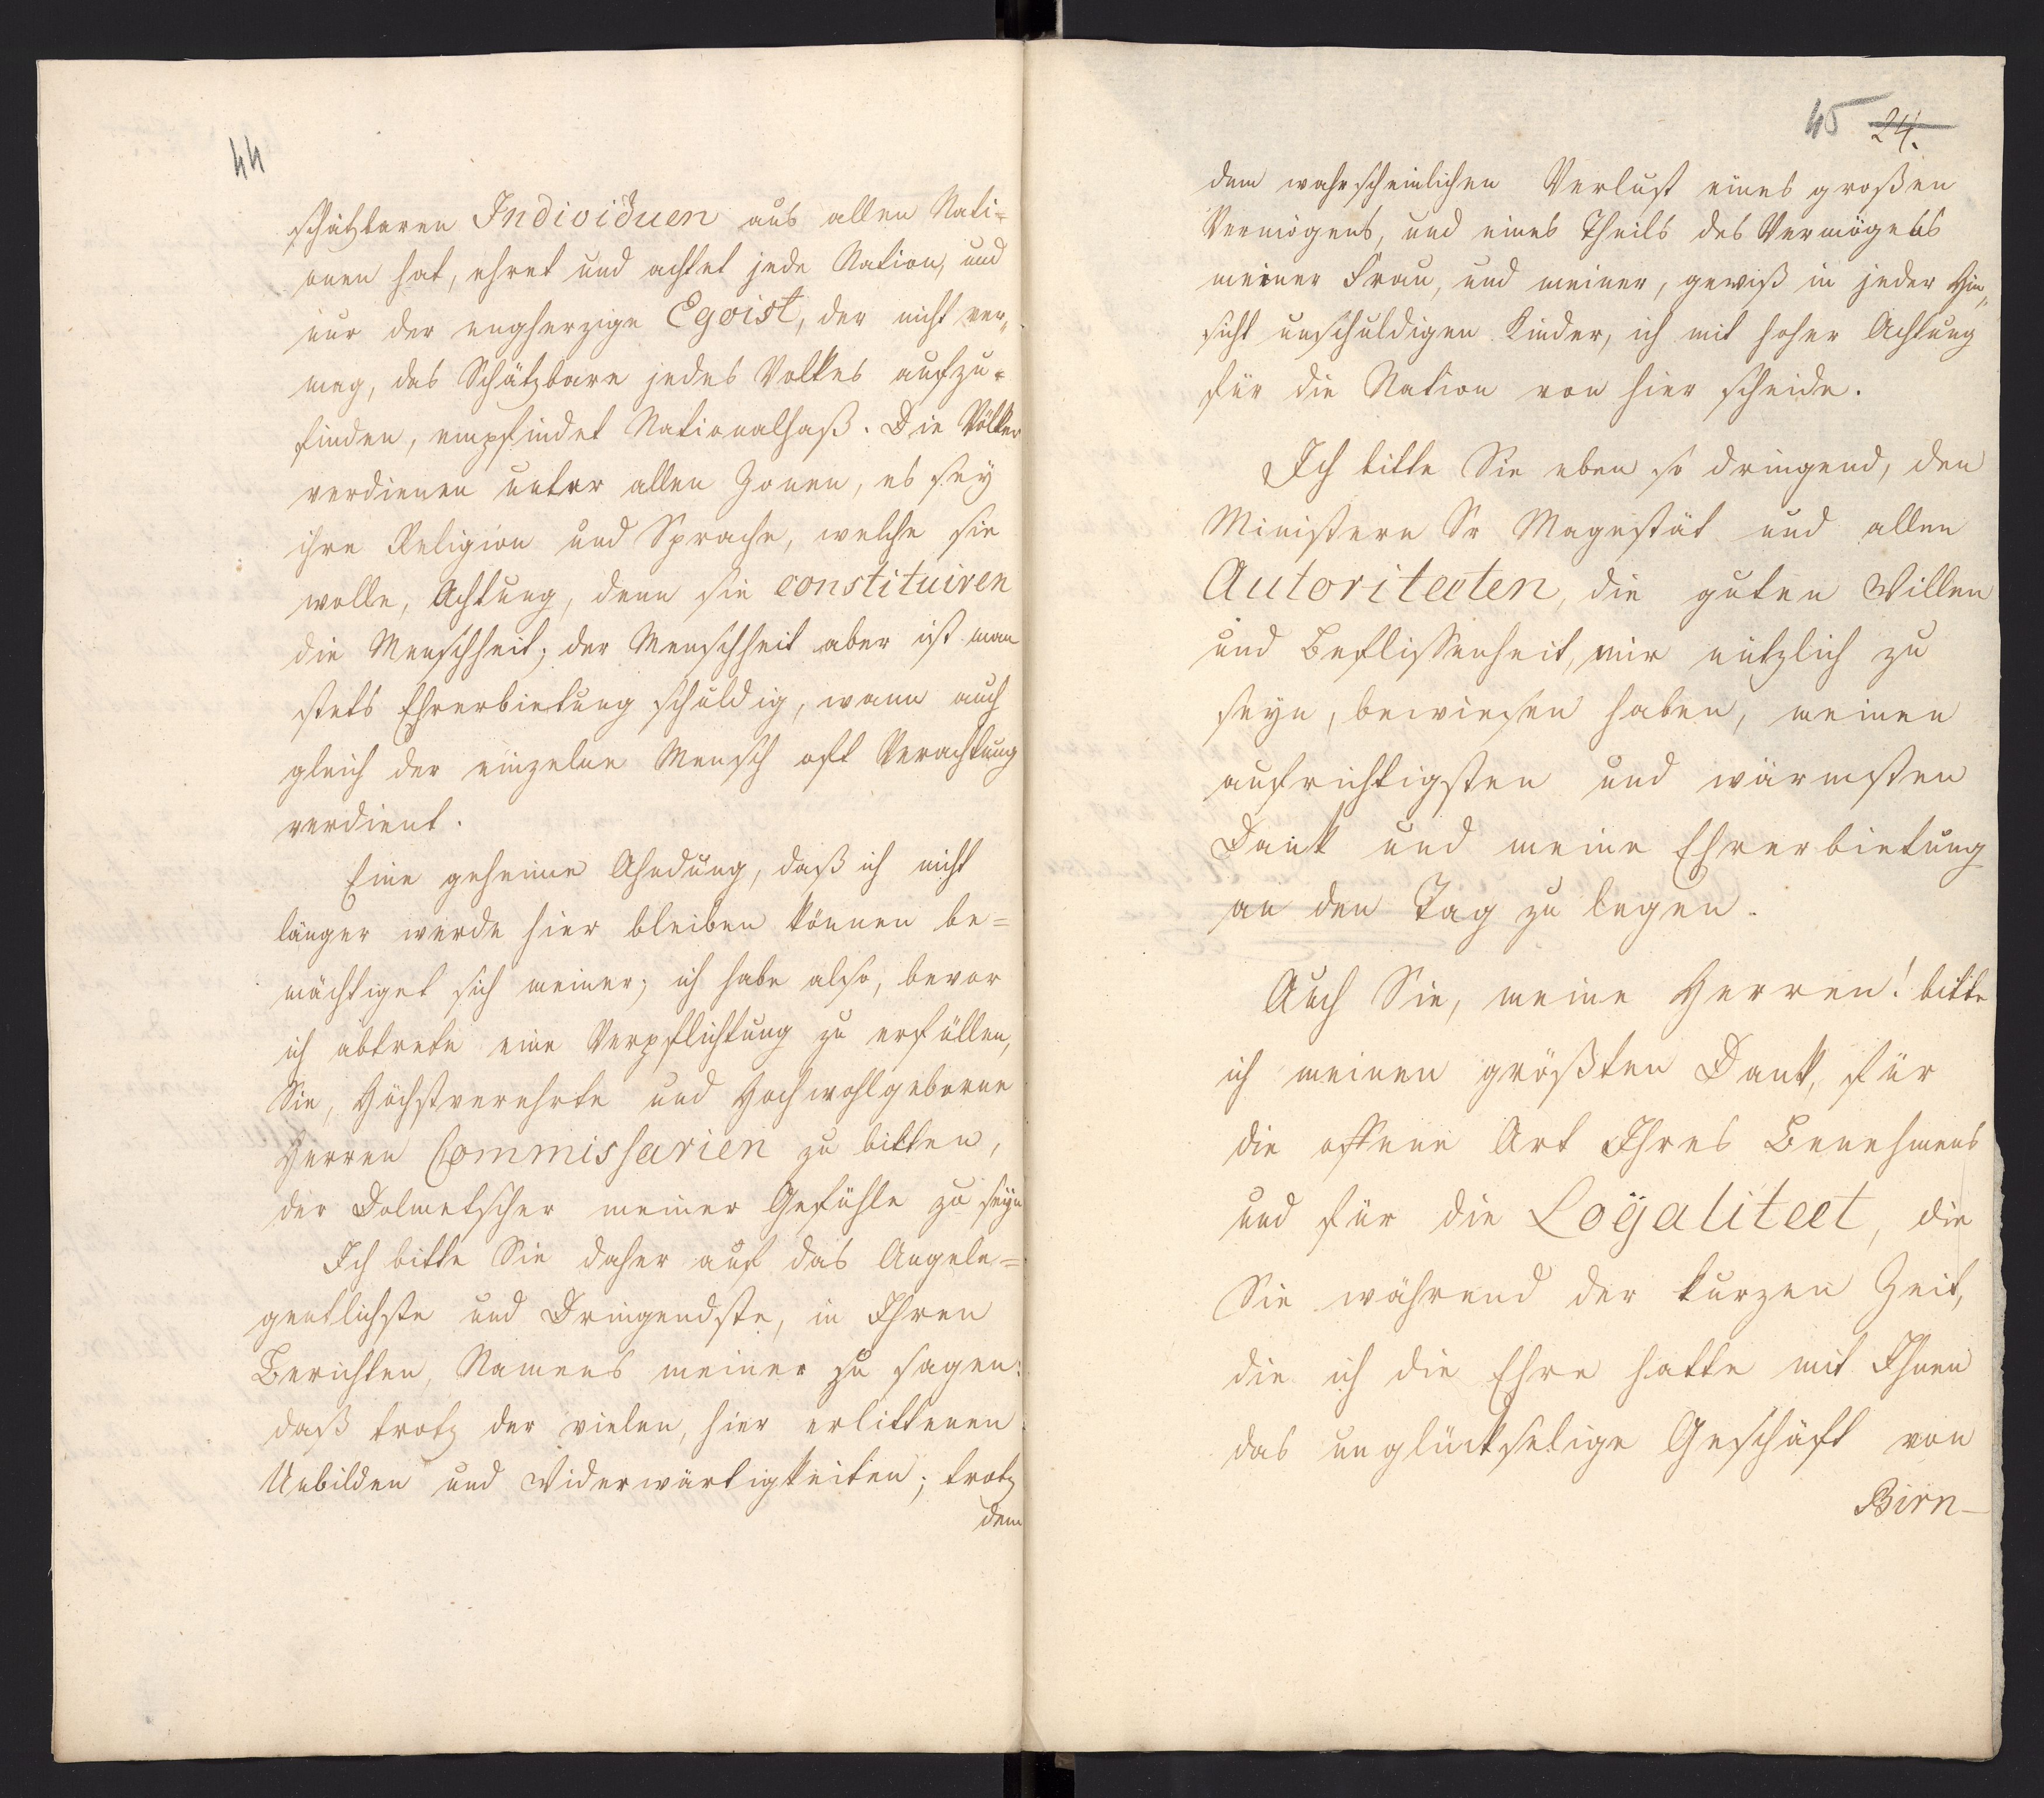 44
schätzbaren Individuen aus allen Nati=
onen hat, ehret und achtet jede Nation, und
nur der engherzige Egoist, der nicht ver„
mag, das Schätzbare jedes Volkes aufzu=
finden, empfindet Nationalhaß. Die Völker
verdienen unter allen Zonen, es sey
ihre Religion und Sprache, welche sie
wolle, Achtung, denn sie constituiren
die Menschheit; der Menschheit aber ist man
stets Ehrerbietung schuldig, wann auch
gleich der einzelne Mensch oft Verachtung
verdient.
Eine geheime Ahndung, daß ich nicht
länger werde hier bleiben können be=
mächtiget sich meiner; ich habe also, bevor
ich abtrete eine Verpflichtung zu erfüllen,
Sie, Höchstverehrte und Hochwohlgeborne
Herren Commissarien zu bitten,
der Dolmetscher meiner Gefühle zu seyn
Ich bitte Sie daher auf das Angele=
gentlichste und Dringendste, in Ihren
Berichten, Namens meiner zu sagen:
daß trotz der vielen, hier erlittenen
Unbilden und Widerwärtigkeiten; trotz
dem
45 24.
dem wahrscheinlichen Verlust eines großen
Vermögens, und eines Theils des Vermögens
meiner Frau, und meiner, gewiß in jeder Hin„
sicht unschuldigen Kinder, ich mit hoher Achtung
für die Nation von hier scheide.
Ich bitte Sie eben so dringend, den
Ministern Sr Magestät und allen
Autoriteeten, die guten Willen
und Beflissenheit, mir nützlich zu
seyn, bewiesen haben, meinen
aufrichtigsten und wärmsten
Dank und meine Ehrerbietung
an den Tag zu legen.
Auch Sie, meine Herren! bitte
ich meinen größten Dank, für
die offene Art Ihres Benehmens
und für die Loÿaliteet, die
Sie während der kurzen Zeit,
die ich die Ehre hatte mit Ihnen
das unglückselige Geschäft von
Birn-